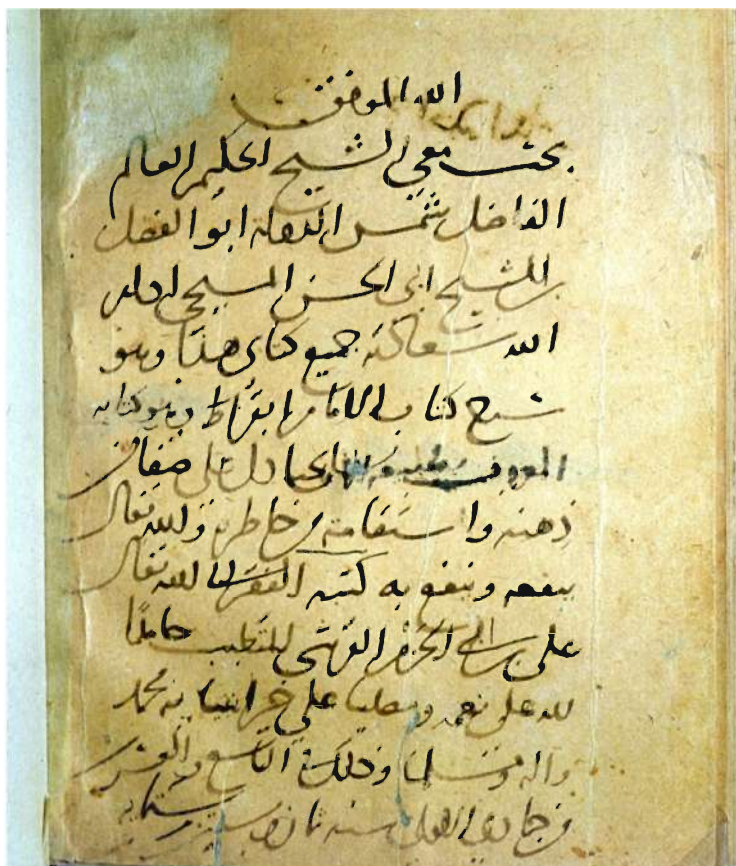 الله الموفق
بحث معي الشيخ الحكيم العالم
الفاضل شمس الدولة ابو الفضل
بن الشيخ ابى الحسن المسيحي ادام
الله سعادته جميع كتابى هذا وهو
شرح كتاب الامام ابقراط وهو كتابه
المعروف بطبيعة بحثا دل على صفاء
ذهنه واستقامة خاطره والله تعالى
ينفعه وينفع به كتبه الفقير الى الله تعالى
على بن ابى الحزم القرشى المتطبب حامدا
لله على نعمه ومصليا على خير انبيائه محمد
واله ومسلما وذلك فى التاسع والعشرين
من جمادى الاولى سنة ثمان وستين وستمائة